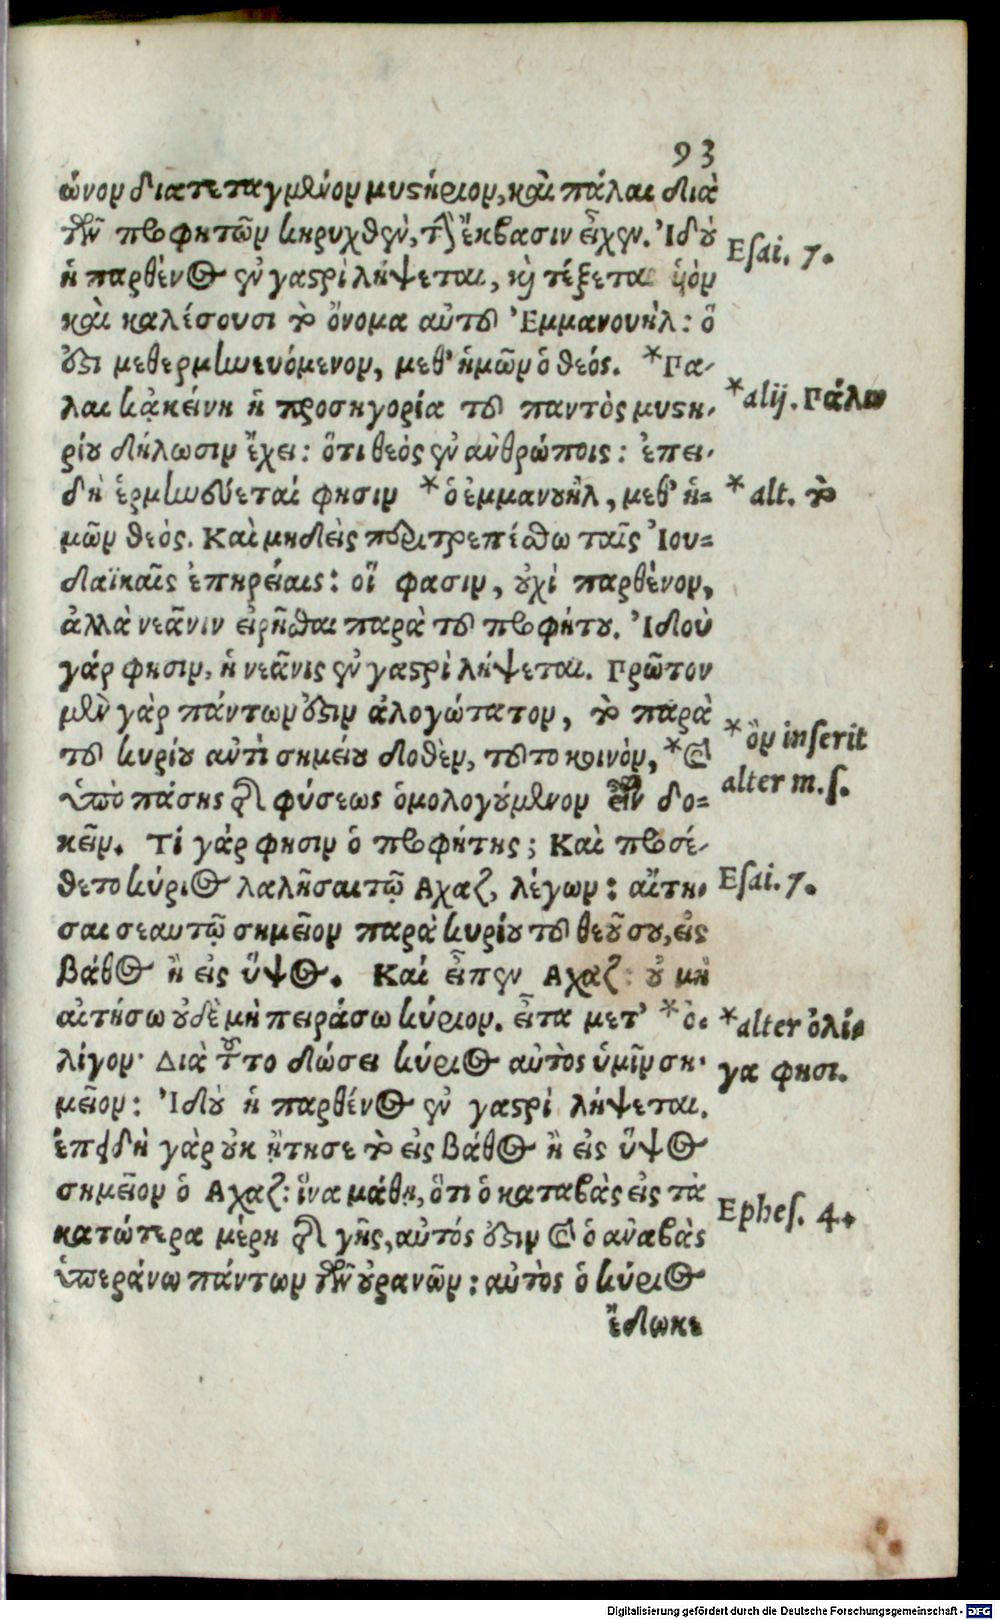 93
ώνον διατεταγμένον μυστήριον, καὶ πάλαι διὰ
τῶν προφητῶν κηρυχθὲν, τὴν ἔκβασιν εἶχεν. Ἰδοὺ
ἡ παρθένος ἐν γαστρὶ λήψεται, καὶ τέξεται ὑιὸν
καὶ καλέσουσι τὸ ὄνομα αὐτοῦ Ἐμμανουήλ: ὅ
ἐστι μεθερμηνευόμενον, μεθ' ἡμῶν ὁ θεός. *Γα-
λαι κἀκείνη ἡ προσηγορία τοῦ παντὸς μυστη-
ρίου δήλωσιν ἔχει: ὅτι θεός ἐν ἀνθρώποις: ἐπει-
δὴ ἑρμηνεύεταί φησιν *ὁ ἐμμανουὴλ, μεθ' ἡ=
μῶν θεός. Καὶ μηδεὶς περιτρεπέσθω ταῖς Ἰου=
δαϊκαῖς ἐπηρείαις: οἵ φασιν, οὐχὶ παρθένον,
ἀλλὰ νεᾶνιν εἰρῆσθαι παρὰ τοῦ προφήτου. Ἰδοὺ
γάρ φησιν, ἡ νεᾶνις ἐν γαστρὶ λήψεται. Γρῶτον
μὲν γὰρ πάντων ἐστὶν ἀλογώτατον, τὸ παρὰ
τοῦ κυρίου αὐτὶ σημείου δοθὲν, τοῦτο κοινὸν, *καὶ
ὑπὸ πάσης τῆς φύσεως ὁμολογούμενον εἶναι δο=
κεῖν. Τί γάρ φησιν ὁ προφήτης; Καὶ προσέ-
θετο κύριος λαλῆσαι τῷ Αχαζ, λέγων: αἴτη-
σαι σεαυτῷ σημεῖον παρὰ κυρίου τοῦ θεοῦ σου, εἰς
βάθος ἢ εἰς ὕψος. Καί εἶπεν Αχαζ: οὐ μὴ
αἰτήσω οὐδὲ μὴ πειράσω κύριον. εἶτα μετ' *ὀ-
λίγον· Διὰ τοῦτο δώσει κύριος αὐτὸς ὑμῖν ση-
μεῖον: Ἰδοὺ ἡ παρθένος ἐν γαστρὶ λήψεται.
ἐπειδὴ γὰρ οὐκ ᾔτησε τὸ εἰς βάθος ἢ εἰς ὕψος
σημεῖον ὁ Αχαζ: ἵνα μάθῃ, ὅτι ὁ καταβὰς εἰς τὰ
κατώτερα μέρη τῆς γῆς, αὐτός ἐστιν καὶ ὁ ἀναβὰς
ὑπεράνω πάντων τῶν οὐρανῶν: αὐτὸς ὁ κύριος
ἔδωκε
Esai. 7.
*alij. Γάλω
*alt. τὸ
*ὂν inserit
alter m.s.
Esai. 7.
*alter ὀλί-
γα φησι.
Ephes. 4.
Digitalisierung gefördert durch die Deutsche Forschungsgemeinschaft - DFG